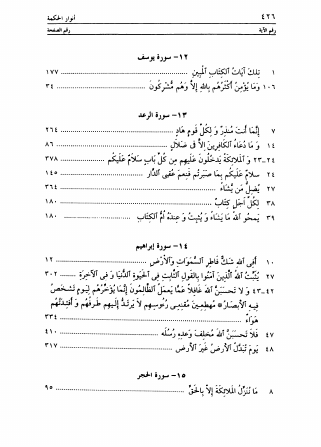 ٤٢٦ أنوار الحكمة
رقم الآية رقم الصفحة
١٢- سورة يوسف
١ تِلكَ آيَاتُ الكِتَابِ المُبِينِ ١٧٧
١٠٦ وَمَا يُؤْمِنُ أَكْثَرُهُم بِاللهِ إِلاَّ وَهُم مُّشْرِكُونَ ٣٤
١٣- سورة الرعد
٧ إِنَّمَا أَنتَ مُنذِرٌ وَ لِكُلِّ قَومٍ هَادٍ ٢٦٤
١٤ وَ مَا دُعَاءُ الكَافِرِينَ إِلاَّ فِى ضَلاَلٍ ٨٦
٢٣-٢٤ وَ المَلاَئِكَةُ يَدخُلُونَ عَلَيهِم مِن كُلِّ بَابٍ سَلاَمٌ عَلَيكُم ٣٧٨
٢٤ سَلاَمٌ عَلَيكُم بِمَا صَبَرتُم فَنِعمَ عُقبَى الدَّارِ ١٤٥
٢٧ يُضِلُّ مَن يَشَاءُ ٣٦٤
٣٨ لِكُلِّ أَجَلٍ كِتَابٌ ١٨٠
٣٩ يَمحُو اللهُ مَا يَشَاءُ وَ يُثبِتُ وَ عِندَهُ أُمُّ الكِتَابِ ١٨٠
١٤- سورة إبراهيم
١٠ أَفِى اللهِ شَكٌّ فَاطِرِ السَّمَوَاتِ وَالأَرْضِ ١٢
٢٧ يُثَبِّتُ اللهُ الَّذِينَ آمَنُوا بِالقَولِ الثَّابِتِ فِى الحَيَوةِ الدُّنيَا وَ فِى الآخِرَةِ ٣٠٢
٤٢-٤٣ وَ لاَ تَحسَبَنَّ اللهَ غَافِلاً عَمَّا يَعمَلُ الظَّالِمُونَ إِنَّمَا يُؤَخِّرُهُم لِيَومٍ تَشخَصُ
فِيهِ الأَبصَارُ * مُهطِعِينَ مُقنِعِى رُءُوسِهِم لاَ يَرتَدُّ إِلَيهِم طَرفُهُم وَ أَفئِدَتُهُم
هَوَاءٌ ٣٣٤
٤٧ فَلاَ تَحسَبَنَّ اللهَ مُخلِفَ وَعدِهِ رُسُلَهُ ٤١٠
٤٨ يَومَ تُبَدَّلُ الأَرضُ غَيرَ الأَرضِ ٣١٧
١٥- سورة الحجر
٨ مَا نُنَزِّلُ المَلاَئِكَةَ إِلاَّ بِالحَقِّ ٩٥